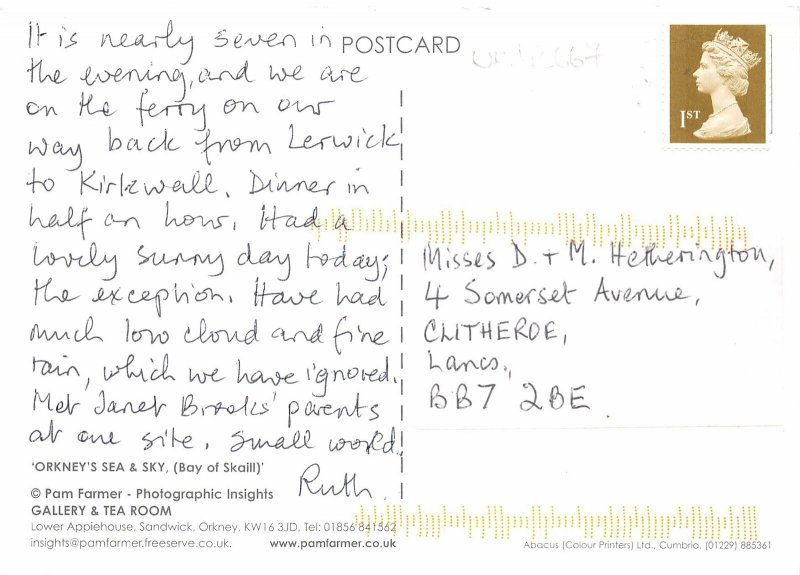 It is nearly seven in
the evening, and we are
on the ferry on our
way back from Lerwick
to Kirkwall. Dinner in
half an hour. Had a
lovely sunny day today;
the exception. Have had
much low cloud and fine
rain, which we have ignored.
Met Janet Brooks' parents
at one site. Small world.
Ruth.
'ORKNEY'S SEA & SKY, (Bay of Skaill)'
© Pam Farmer - Photographic Insights
GALLERY & TEA ROOM
Lower Appiehouse, Sandwick, Orkney, KW16 3JD, Tel: 01856 841562
insights@pamfarmer.freeserve.co.uk. www.pamfarmer.co.uk
POSTCARD
1ST
Misses D. + M. Hetherington,
4 Somerset Avenue,
CLITHEROE,
Lancs.,
BB7 2BE.
Abacus (Colour Printers) Ltd., Cumbria, (01229) 885361